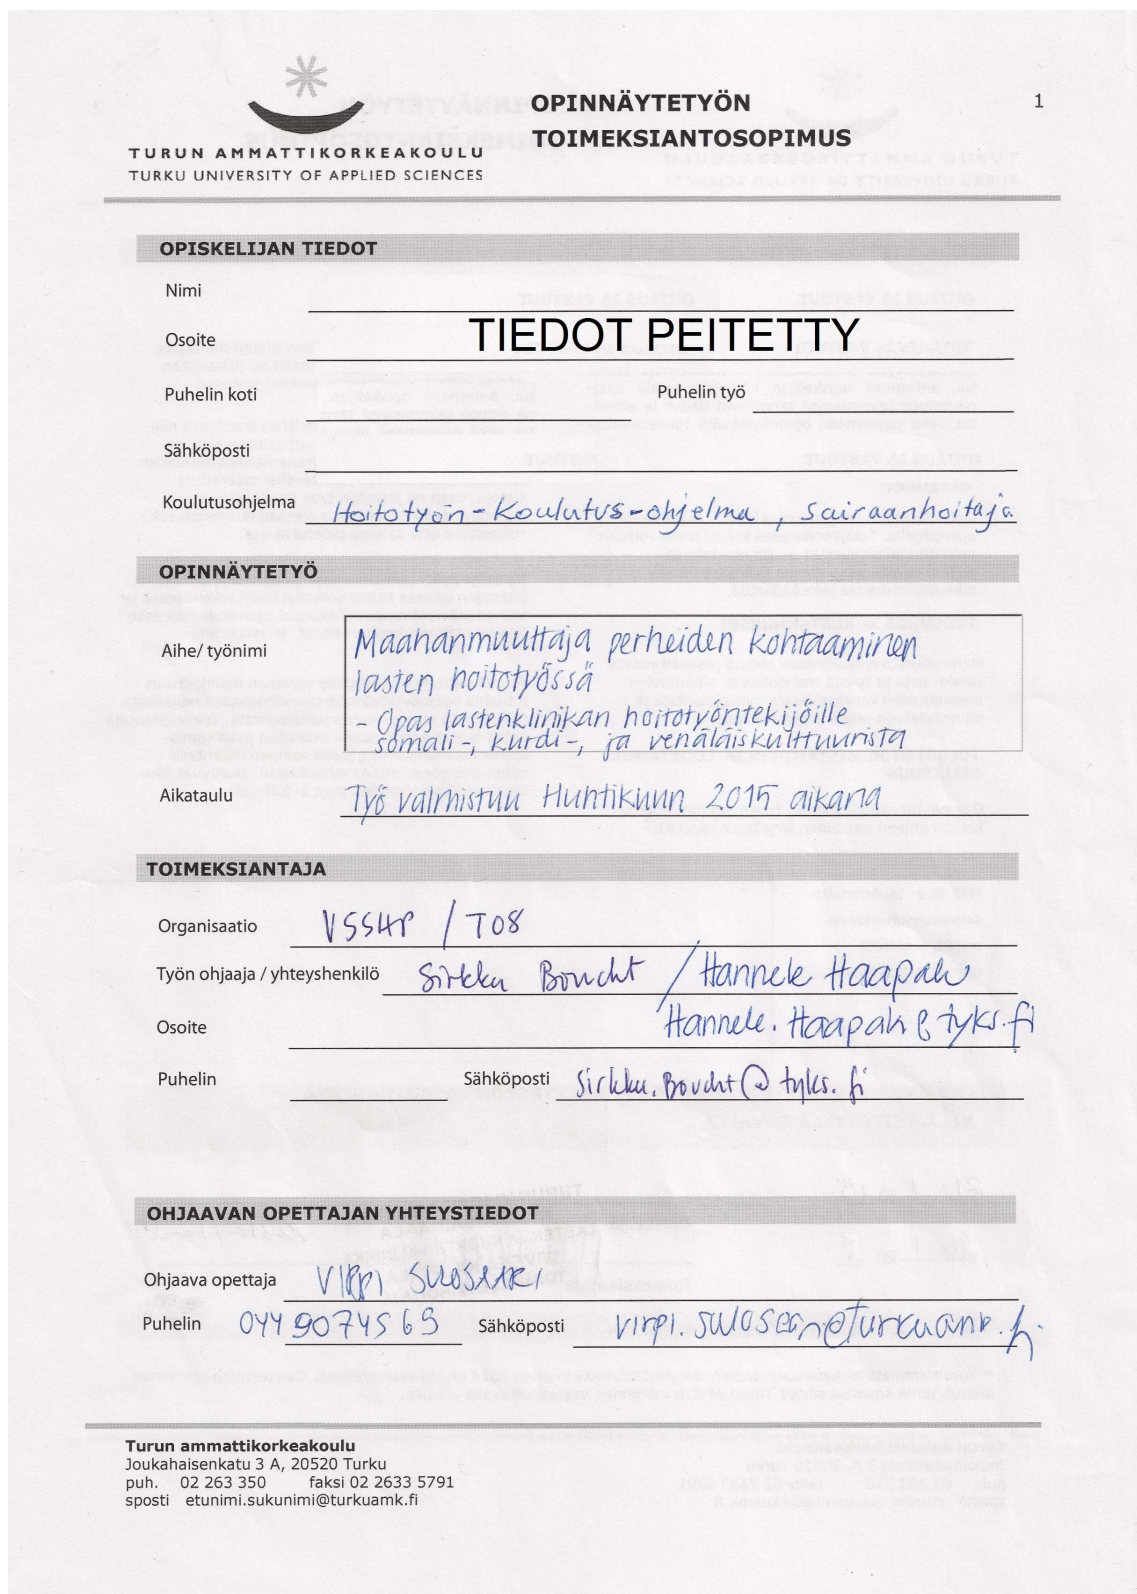 OPINNÄYTETYÖN
TOIMEKSIANTOSOPIMUS
1
TURUN AMMATTIKORKEAKOULU
TURKU UNIVERSITY OF APPLIED SCIENCES
OPISKELIJAN TIEDOT
Nimi
TIEDOT PEITETTY
Osoite
Puhelin koti Puhelin työ
Sähköposti
Koulutusohjelma Hoitotyön-Koulutus-ohjelma, Sairaanhoitaja
OPINNÄYTETYÖ
Aihe/ työnimi Maahanmuuttaja perheiden kohtaaminen
lasten hoitotyössä
- Opas lastenklinikan hoitotyöntekijöille
somali-, kurdi-, ja venäläiskulttuurista
Aikataulu Työ valmistuu Huhtikuun 2015 aikana
TOIMEKSIANTAJA
Organisaatio VSSHP / TO8
Työn ohjaaja / yhteyshenkilö Sirkku Boucht / Hannele Haapala
Osoite Hannele.Haapala@tyks.fi
Puhelin Sähköposti Sirkku.Boucht@tyks.fi
OHJAAVAN OPETTAJAN YHTEYSTIEDOT
Ohjaava opettaja VIRPI SULOSAARI
Puhelin 044 9074569 Sähköposti virpi.sulosaari@turkuamk.fi
Turun ammattikorkeakoulu
Joukahaisenkatu 3 A, 20520 Turku
puh. 02 263 350 faksi 02 2633 5791
sposti etunimi.sukunimi@turkuamk.fi